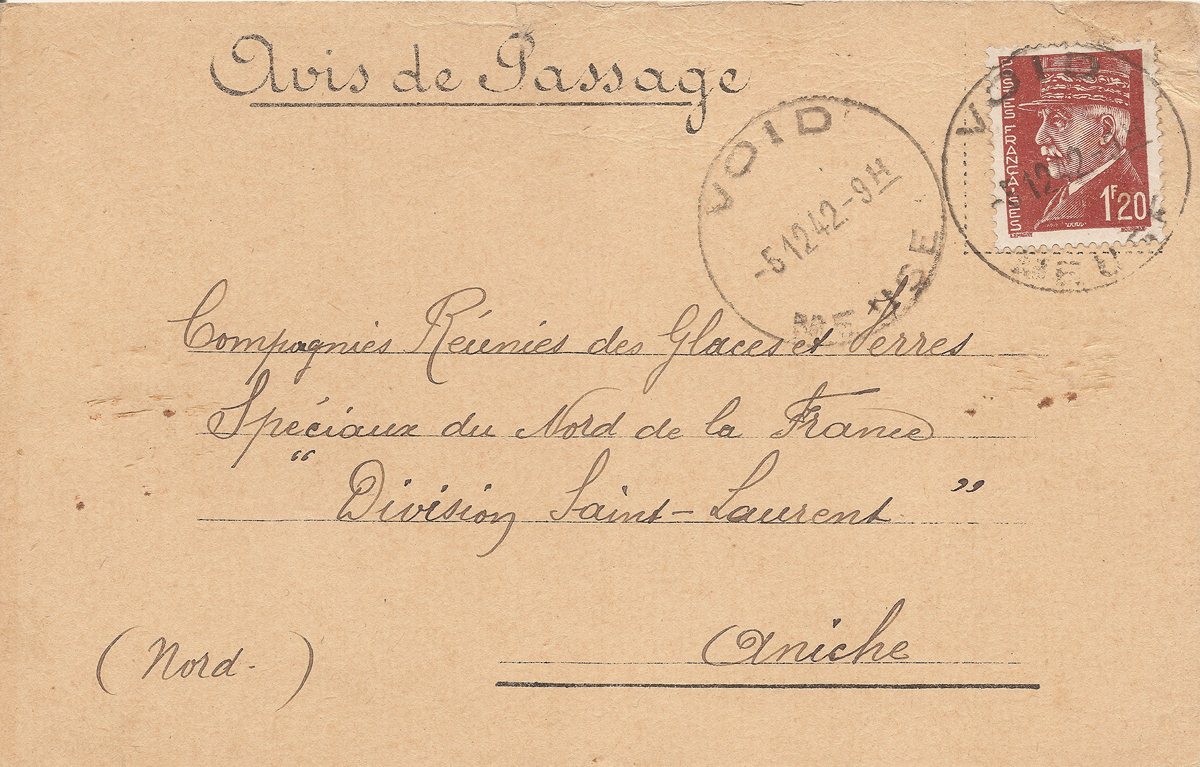 Avis de Passage
POSTES FRANÇAISES
1F20
VOID
-5 12 42 -9H
MEUSE
VOID
12 42
MEUSE
Compagnies Réunies des Glaces et Verres
Spéciaux du Nord de la France
" Division Saint-Laurent "
Aniche
(Nord-)